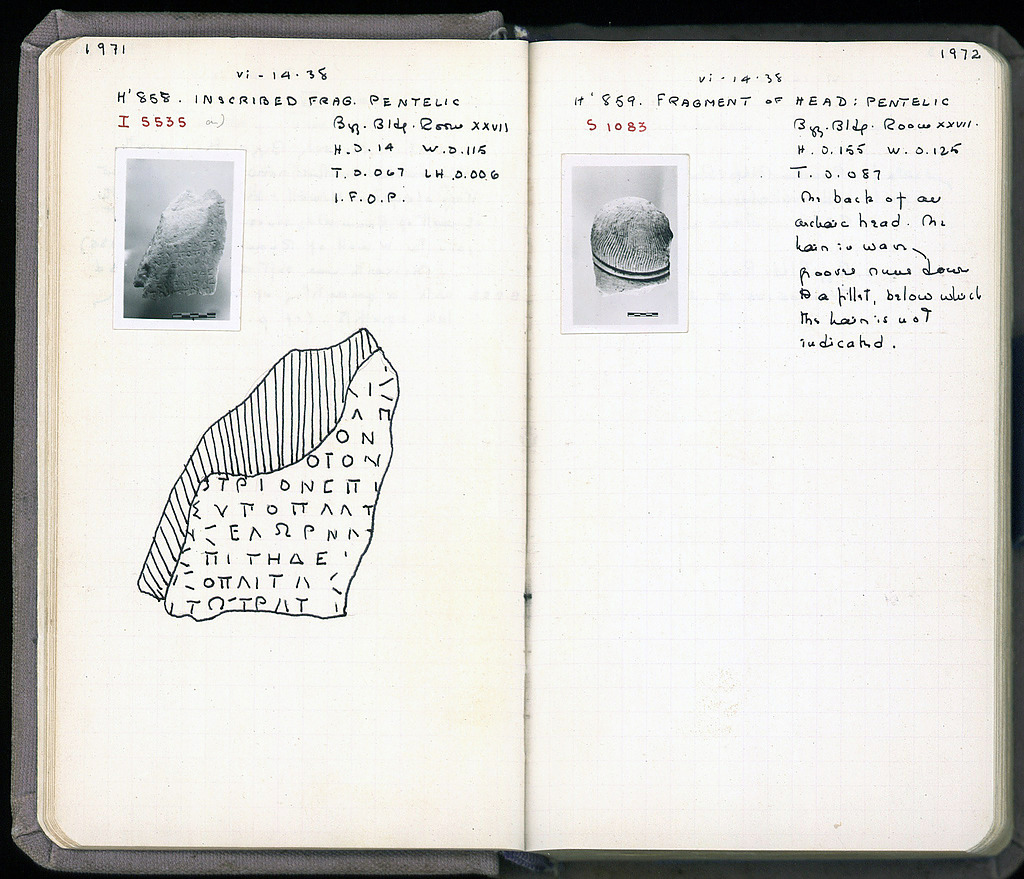 1971
vi - 14 - 38
H' 858. INSCRIBED FRAG. PENTELIC
I 5535 a)
Byz. Bldg. Room XXVII
H. 0.14 W. 0.115
T. 0.067 LH. 0.006
I.F.O.P.
Ι
Λ Π
Ο Ν
Ο Τ Ο Ν
Τ Ρ Ι Ο Ν Ε Π Ι
Σ Υ Π Ο Π Λ Α Τ
Ε Λ Ω Ρ Ν Λ
Π Ι Τ Η Δ Ε
Ο Π Λ Ι Τ Λ
Τ Ω Τ Ρ Α Τ
1972
vi - 14 - 38
H' 859. FRAGMENT OF HEAD: PENTELIC
S 1083
Byz. Bldg. Room XXVII.
H. 0.155 W. 0.125
T. 0.087
The back of an
archaic head. The
hair in wavy
grooves runs down
to a fillet, below which
the hair is not
indicated.